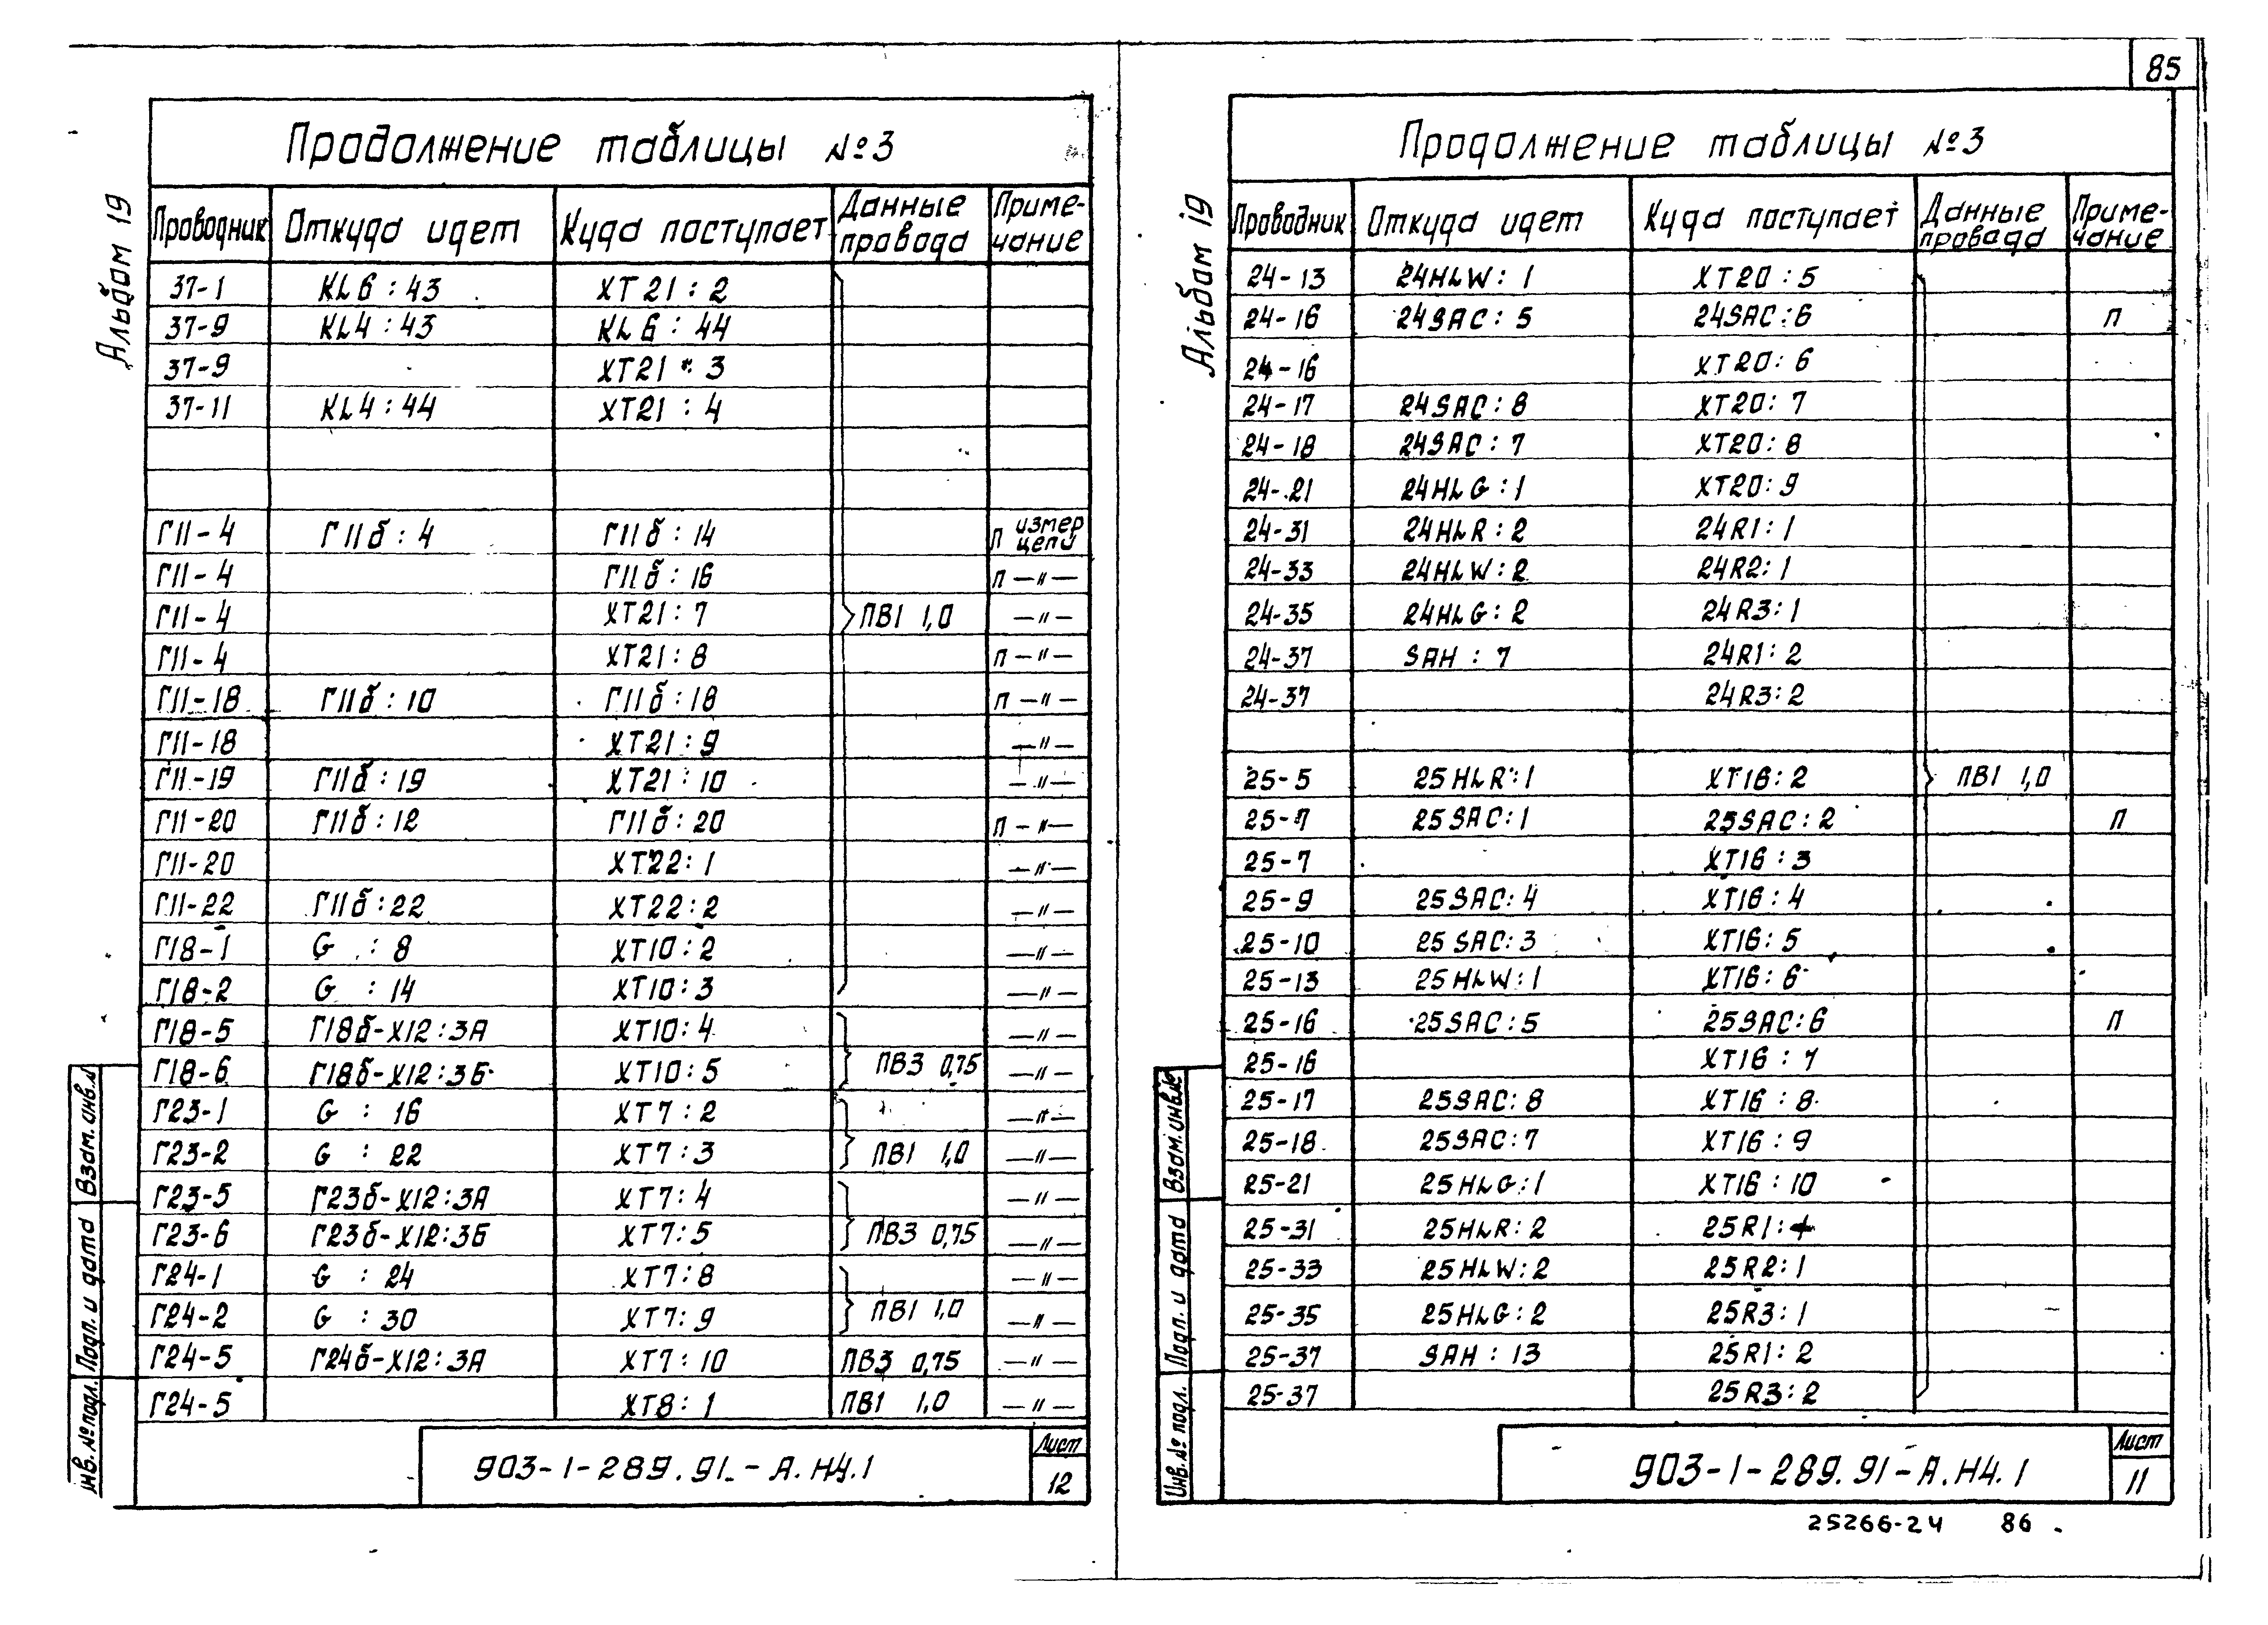 85
Альбом 19
Продолжение таблицы №3
Проводник Откуда идет Куда поступает Данные провода Приме-чание
37-1 KL6 : 43 XT21 : 2
37-9 KL4 : 43 KL6 : 44
37-9 XT21 : 3
37-11 KL4 : 44 XT21 : 4
Г11-4 Г11б : 4 Г11б : 14 п измер цепи
Г11-4 Г11б : 16 п —"—
Г11-4 XT21 : 7 ПВ1 1,0 —"—
Г11-4 XT21 : 8 п —"—
Г11-18 Г11б : 10 Г11б : 18 п —"—
Г11-18 XT21 : 9 —"—
Г11-19 Г11б : 19 XT21 : 10 —"—
Г11-20 Г11б : 12 Г11б : 20 п —"—
Г11-20 XT22 : 1 —"—
Г11-22 Г11б : 22 XT22 : 2 —"—
Г18-1 G : 8 XT10 : 2 —"—
Г18-2 G : 14 XT10 : 3 —"—
Г18-5 Г18б-Х12:3А XT10 : 4 —"—
Г18-6 Г18б-Х12:3Б XT10 : 5 ПВ3 0,75 —"—
Г23-1 G : 16 XT7 : 2 —"—
Г23-2 G : 22 XT7 : 3 ПВ1 1,0 —"—
Г23-5 Г23б-Х12:3А XT7 : 4 —"—
Г23-6 Г23б-Х12:3Б XT7 : 5 ПВ3 0,75 —"—
Г24-1 G : 24 XT7 : 8 —"—
Г24-2 G : 30 XT7 : 9 ПВ1 1,0 —"—
Г24-5 Г24б-Х12:3А XT7 : 10 ПВ3 0,75 —"—
Г24-5 XT8 : 1 ПВ1 1,0 —"—
Взам. инв.№
Подп. и дата
Инв. № подл.
903-1-289.91-А.Н4.1
Лист
12
Альбом 19
Продолжение таблицы №3
Проводник Откуда идет Куда поступает Данные провода Приме-чание
24-13 24HLW : 1 XT20 : 5
24-16 24SAC : 5 24SAC : 6 п
24-16 XT20 : 6
24-17 24SAC : 8 XT20 : 7
24-18 24SAC : 7 XT20 : 8
24-21 24HLG : 1 XT20 : 9
24-31 24HLR : 2 24R1 : 1
24-33 24HLW : 2 24R2 : 1
24-35 24HLG : 2 24R3 : 1
24-37 SAH : 7 24R1 : 2
24-37 24R3 : 2
25-5 25HLR : 1 XT16 : 2 ПВ1 1,0
25-7 25SAC : 1 25SAC : 2 п
25-7 XT16 : 3
25-9 25SAC : 4 XT16 : 4
25-10 25SAC : 3 XT16 : 5
25-13 25HLW : 1 XT16 : 6
25-16 25SAC : 5 25SAC : 6 п
25-16 XT16 : 7
25-17 25SAC : 8 XT16 : 8
25-18 25SAC : 7 XT16 : 9
25-21 25HLG : 1 XT16 : 10
25-31 25HLR : 2 25R1 : 1
25-33 25HLW : 2 25R2 : 1
25-35 25HLG : 2 25R3 : 1
25-37 SAH : 13 25R1 : 2
25-37 25R3 : 2
Взам. инв.№
Подп. и дата
Инв. № подл.
903-1-289.91-А.Н4.1
Лист
11
25266-24 86